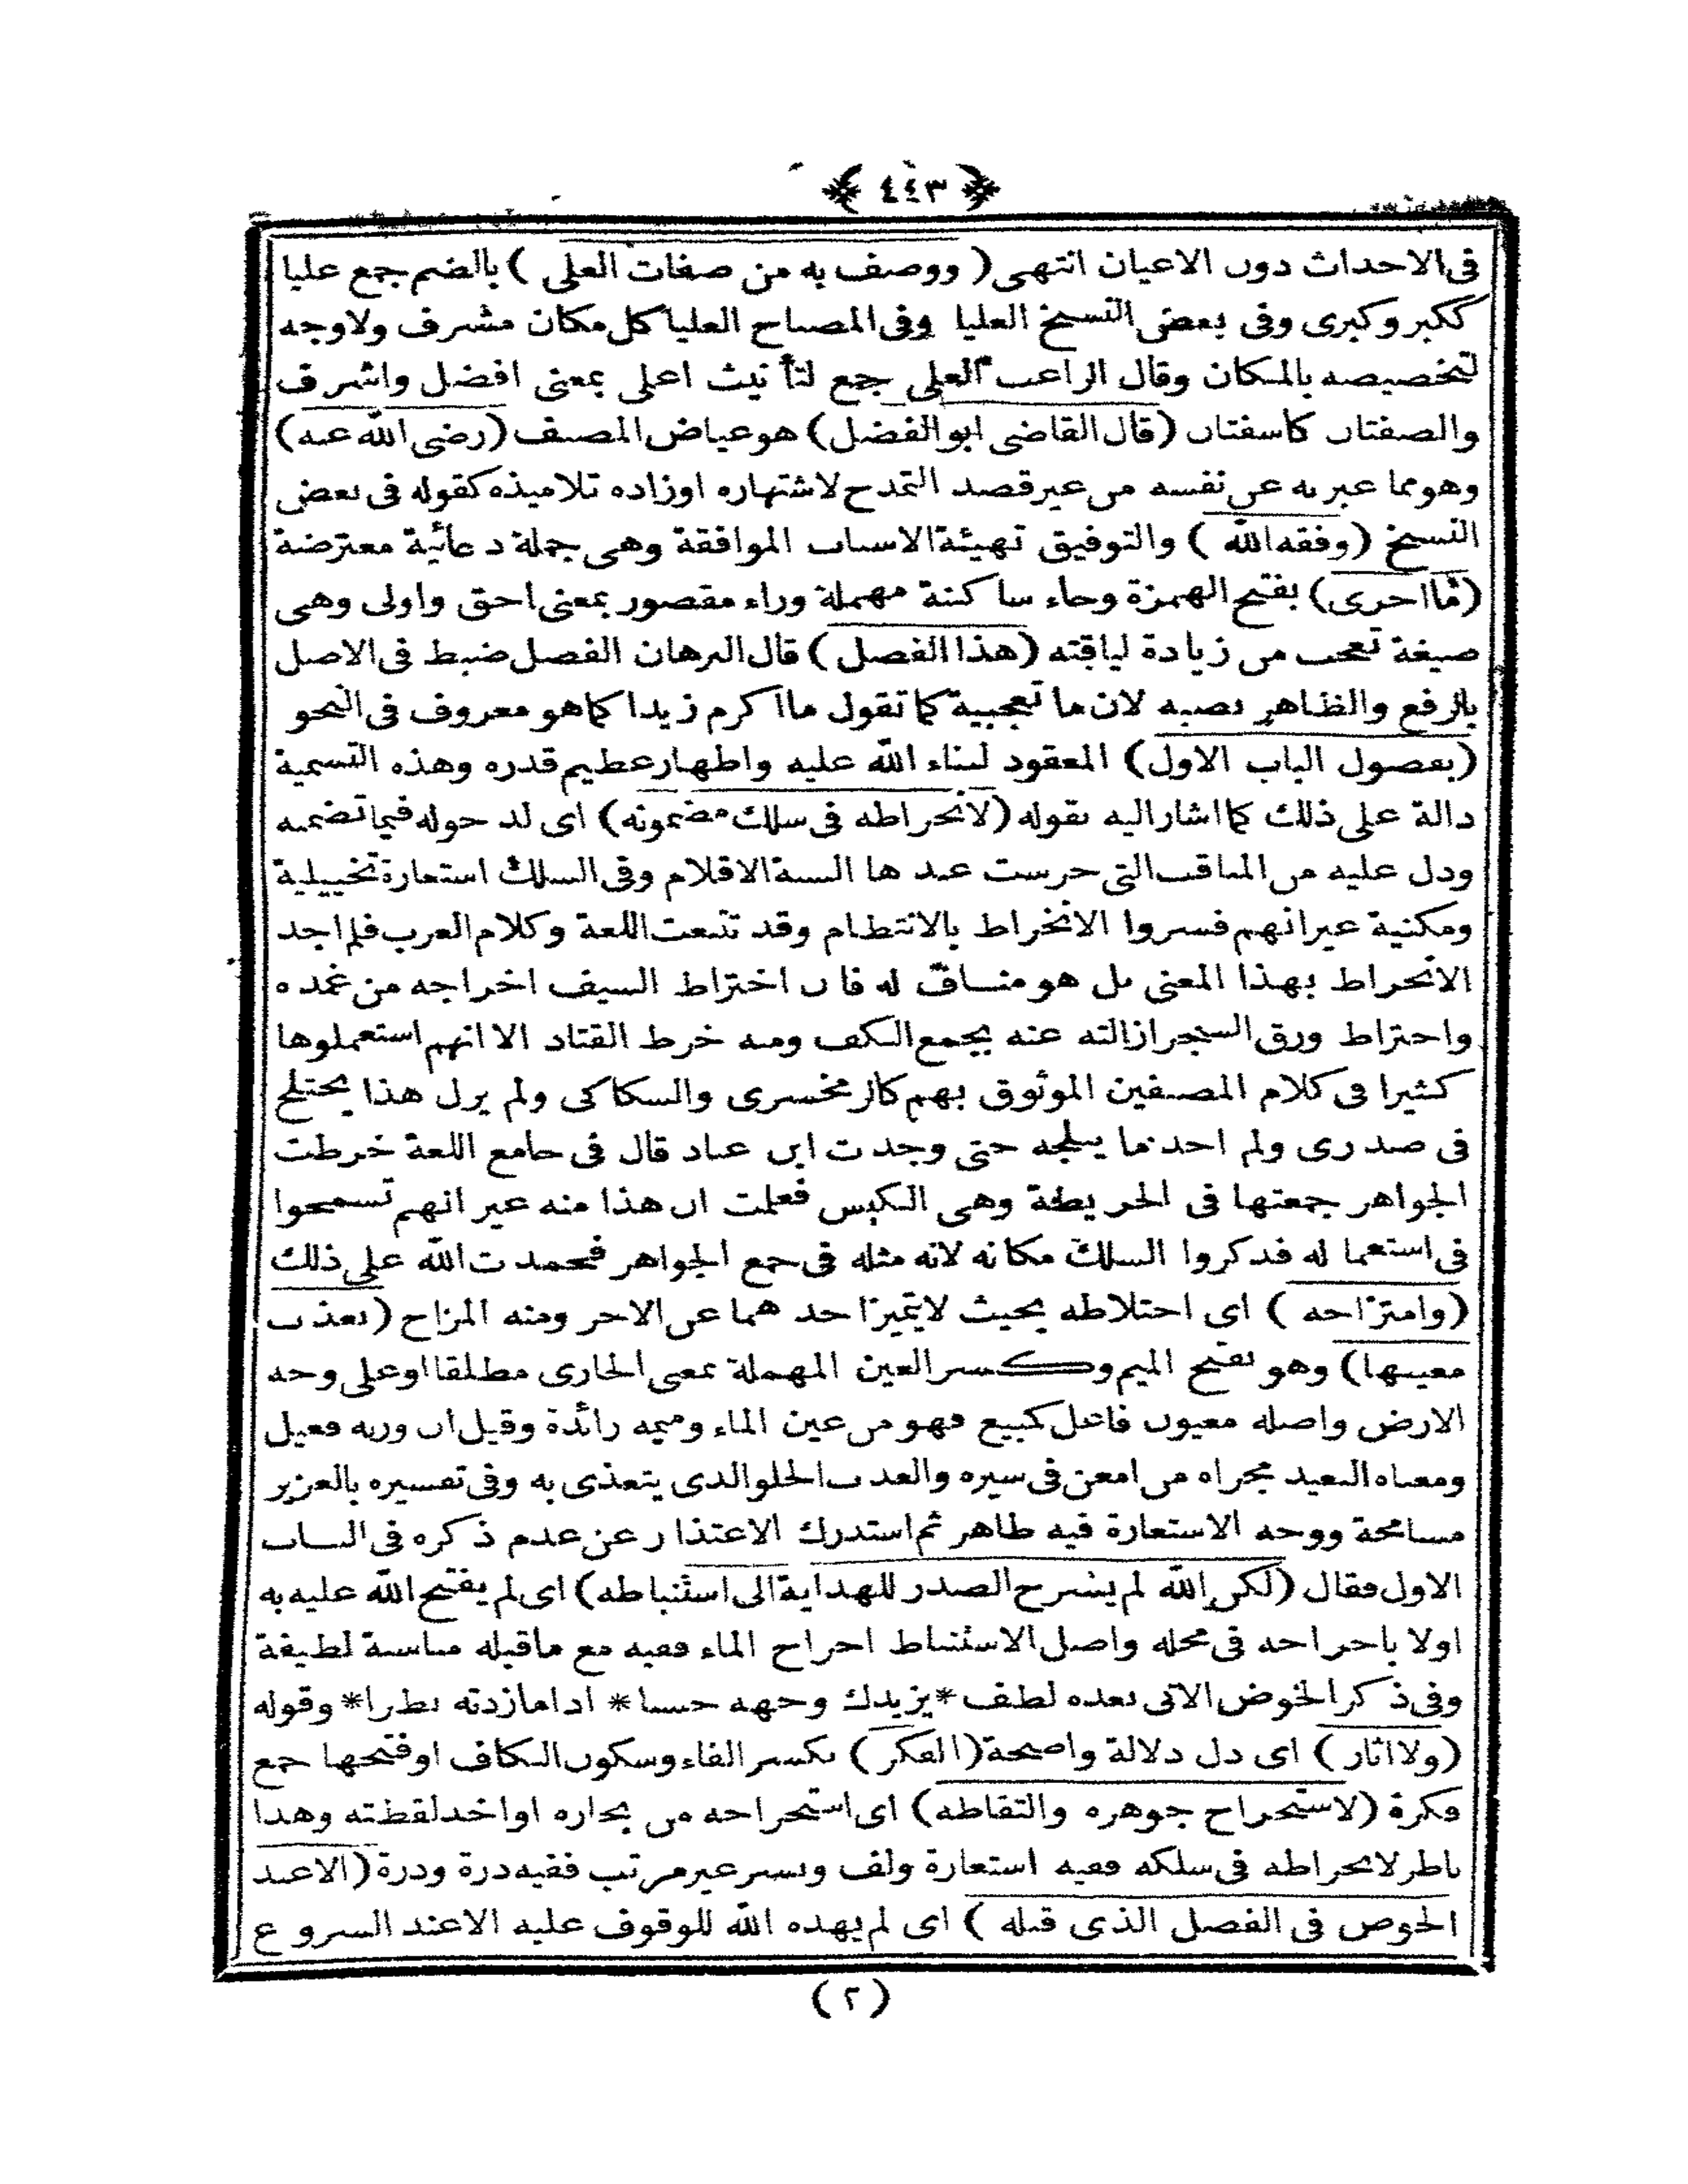 ﴿ ٤٤٣ ﴾
فى الاحداث دون الاعيان انتهى ( ووصف به من صفات العلى ) بالضم جمع عليا
ككبر وكبرى وفى بعض النسخ العليا وفى المصباح العليا كل مكان مشرف ولا وجه
لتخصيصه بالمكان وقال الراغب العلى جمع لتأ نيث اعلى بمعنى افضل واشرف
والصفتان كاسفتان (قال القاضى ابو الفضل) هو عياض المصنف (رضى الله عنه)
وهو مما عبر به عن نفسه من غير قصد التمدح لاشتهاره اوزاده تلاميذه كقوله فى بعض
النسخ (وفقه الله ) والتوفيق تهيئة الاسباب الموافقة وهى جملة دعائية معترضة
(فا احرى) بفتح الهمزة وحاء ساكنة مهملة وراء مقصور بمعنى احق واولى وهى
صيغة تعجب من زيادة لياقته (هذا الفصل ) قال البرهان الفصل ضبط فى الاصل
بالرفع والظاهر نصبه لان ما تعجبية كما تقول ما اكرم زيدا كما هو معروف فى النحو
(بفصول الباب الاول) المعقود لثناء الله عليه واظهار عظيم قدره وهذه التسمية
دالة على ذلك كما اشار اليه بقوله (لانخراطه فى سلك مضمونه) اى لدخوله فيما تضمنه
ودل عليه من المناقب التى خرست عندها السنة الاقلام وفى السلك استعارة تخييلية
ومكنية غير انهم فسروا الانخراط بالانتظام وقد تتبعت اللغة وكلام العرب فلم اجد
الانخراط بهذا المعنى بل هو مناف له فان اختراط السيف اخراجه من غمده
واختراط ورق الشجر ازالته عنه بجمع الكف ومنه خرط القتاد الا انهم استعملوها
كثيرا فى كلام المصنفين الموثوق بهم كالزمخشرى والسكاكى ولم يزل هذا يختلج
فى صدرى ولم اجد ما يثلجه حتى وجدت ابن عباد قال فى جامع اللغة خرطت
الجواهر جمعتها فى الخريطة وهى الكيس فعلمت ان هذا منه غير انهم تسمحوا
فى استعماله فذكروا السلك مكانه لانه مثله فى جمع الجواهر فحمدت الله على ذلك
(وامتزاجه ) اى اختلاطه بحيث لا يتميز احدهما عن الاخر ومنه المزاج (بعذب
معينها) وهو بفتح الميم وكسر العين المهملة بمعنى الجارى مطلقا او على وجه
الارض واصله معيون فاعل كمبيع فهو من عين الماء وميمه زائدة وقيل ان وزنه فعيل
ومعناه البعيد مجراه من امعن فى سيره والعذب الحلو الذى يتغذى به وفى تفسيره بالعزيز
مسامحة ووجه الاستعارة فيه ظاهر ثم استدرك الاعتذار عن عدم ذكره فى الباب
الاول فقال (لكن الله لم يشرح الصدر للهداية الى استنباطه) اى لم يفتح الله عليه به
اولا باخراجه فى محله واصل الاستنباط اخراج الماء ففيه مع ما قبله مناسبة لطيفة
وفى ذكر الخوض الاتى بعده لطف *يزيدك وجهه حسنا* اذا ما زدته نظرا* وقوله
(ولا اثار ) اى دل دلالة واضحة (الفكر ) بكسر الفاء وسكون الكاف او فتحها جمع
فكرة (لاستخراج جوهره والتقاطه) اى استخراجه من بحاره او اخذ لقطته وهذا
ناظر لانخراطه فى سلكه ففيه استعارة ولف ونشر غير مرتب ففيه درة ودرة (الا عند
الخوض فى الفصل الذى قبله ) اى لم يهده الله للوقوف عليه الا عند الشروع
(٢)